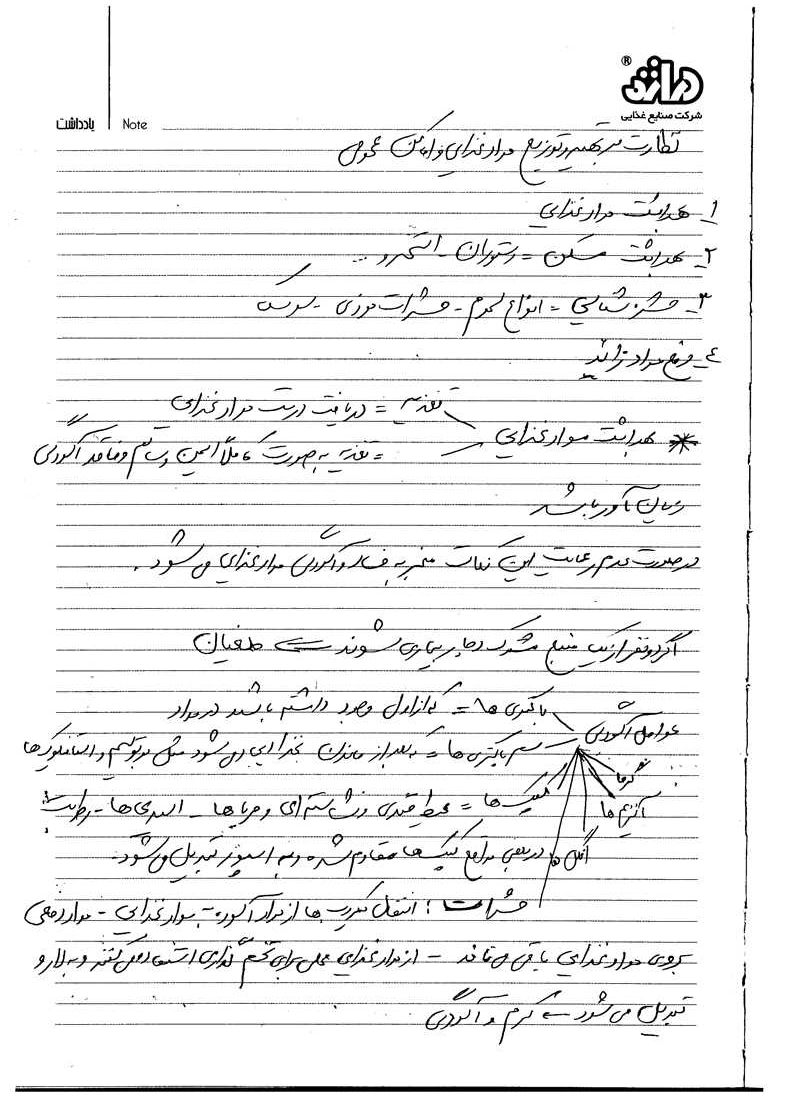 مانتد®
شرکت صنایع غذایی
یادداشت Note
نظارت بر تهیه و توزیع مواد غذایی و اماکن عمومی
۱_ بهداشت مواد غذایی
۲_ بهداشت مسکن = رستوران - استخر و ...
۳_ حشره شناسی = انواع سموم - حشرات موذی - سوسک
٤_ دفع مواد زائد
تغذیه = دریافت درست مواد غذایی
* بهداشت مواد غذایی
= تغذیه به صورت کاملاً ایمن و سالم و فاقد آلودگی
زیان آور باشد
در صورت عدم رعایت این نکات منجر به فساد و آلودگی مواد غذایی می شود.
اگر دو نفر از یک منبع مشترک دچار بیماری شوند ⇐ طغیان
عوامل آلودگی
باکتری ها = که از اول وجود داشته باشند در مواد
سم باکتری ها = که بعد از ماندن غذا ایجاد می شود مثل بوتولیسم و استافیلوکوک ها
کپک ها = محیط قندی و نشاسته ای و مربا ها - اسیدی ها - رطوبت
گرما
آنزیم ها
انگل ها
در بعضی مواقع کپک ها مقاوم شده و به اسپور تبدیل می شود.
حشرات: انتقال میکروب ها از مواد آلوده به مواد غذایی - مواد دفعی
بروی مواد غذایی باقی می ماند - از مواد غذایی محلی برای تخم گذاری استفاده می کنند و به لارو
تبدیل می شود ⇐ کرم و آلودگی